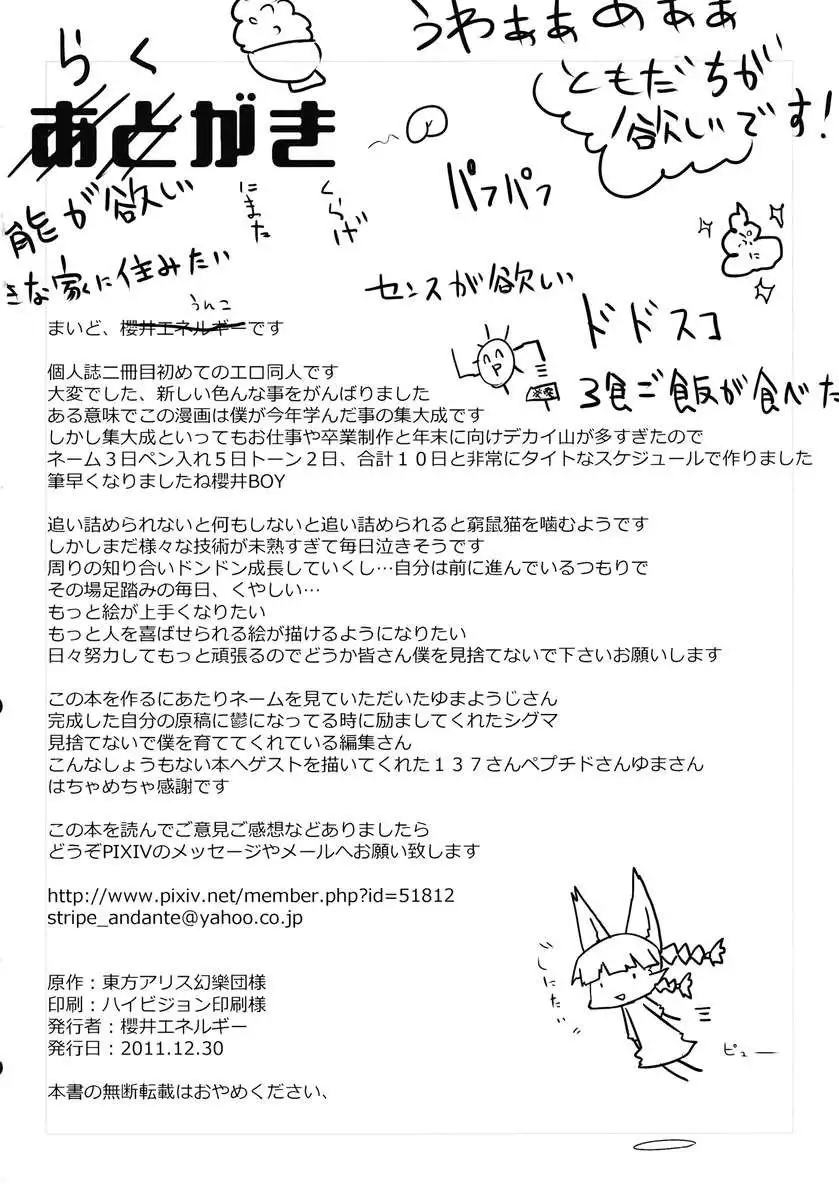 うわぁぁめぁぁ
らく
ともだちが
欲しいです！
あとがき
パフパフ
能が欲しい
にまた
くらげ
きな家に住みたい
センスが欲しい
ドドスコ
3食ご飯が食べた
うんこ
まいど、櫻井エネルギーです
個人誌二冊目初めてのエロ同人です
大変でした、新しい色んな事をがんばりました
ある意味でこの漫画は僕が今年学んだ事の集大成です
しかし集大成といってもお仕事や卒業制作と年末に向けデカイ山が多すぎたので
ネーム３日ペン入れ５日トーン２日、合計１０日と非常にタイトなスケジュールで作りました
筆早くなりましたね櫻井BOY
追い詰められないと何もしないと追い詰められると窮鼠猫を噛むようです
しかしまだ様々な技術が未熟すぎて毎日泣きそうです
周りの知り合いドンドン成長していくし…自分は前に進んでいるつもりで
その場足踏みの毎日、くやしい…
もっと絵が上手くなりたい
もっと人を喜ばせられる絵が描けるようになりたい
日々努力してもっと頑張るのでどうか皆さん僕を見捨てないで下さいお願いします
この本を作るにあたりネームを見ていただいたゆまようじさん
完成した自分の原稿に鬱になってる時に励ましてくれたシグマ
見捨てないで僕を育ててくれている編集さん
こんなしょうもない本へゲストを描いてくれた１３７さんペプチドさんゆまさん
はちゃめちゃ感謝です
この本を読んでご意見ご感想などありましたら
どうぞPIXIVのメッセージやメールへお願い致します
http://www.pixiv.net/member.php?id=51812
stripe_andante@yahoo.co.jp
じにたい
ピュー
原作：東方アリス幻樂団様
印刷：ハイビジョン印刷様
発行者：櫻井エネルギー
発行日：2011.12.30
本書の無断転載はおやめください、